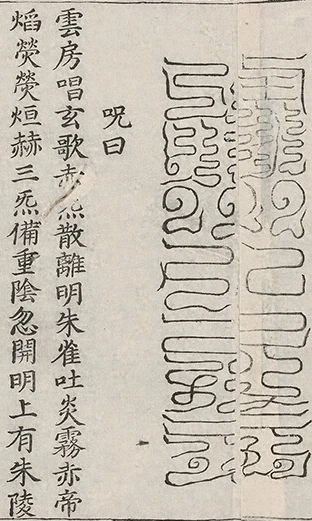 呪曰
雲房唱玄歌赤炁散離明朱雀吐炎霧赤帝
熖熒熒烜赫三炁備重陰忽開明上有朱陵